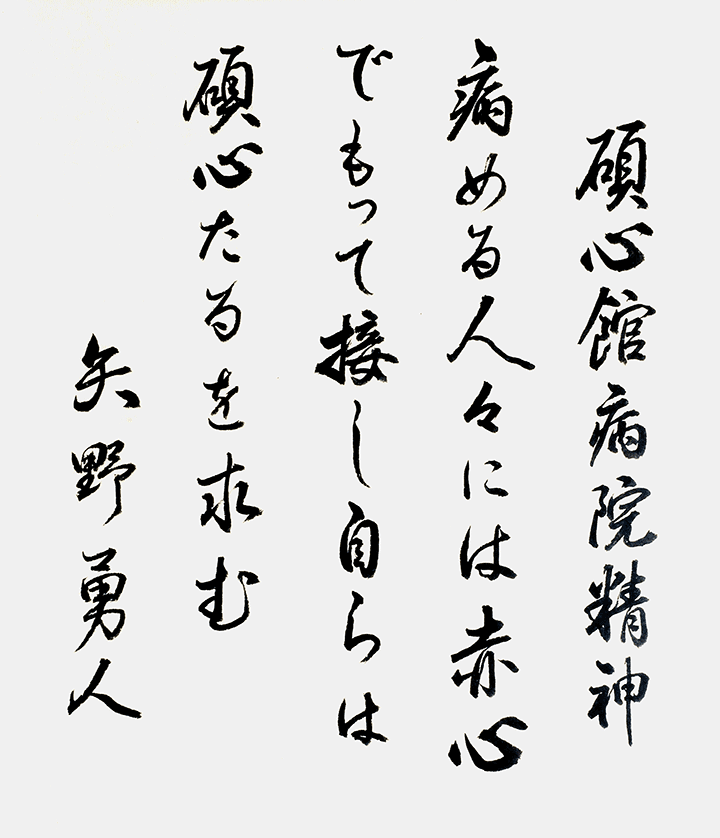 碩心館病院精神
病める人々には赤心
でもって接し自らは
碩心たるを求む
矢野勇人